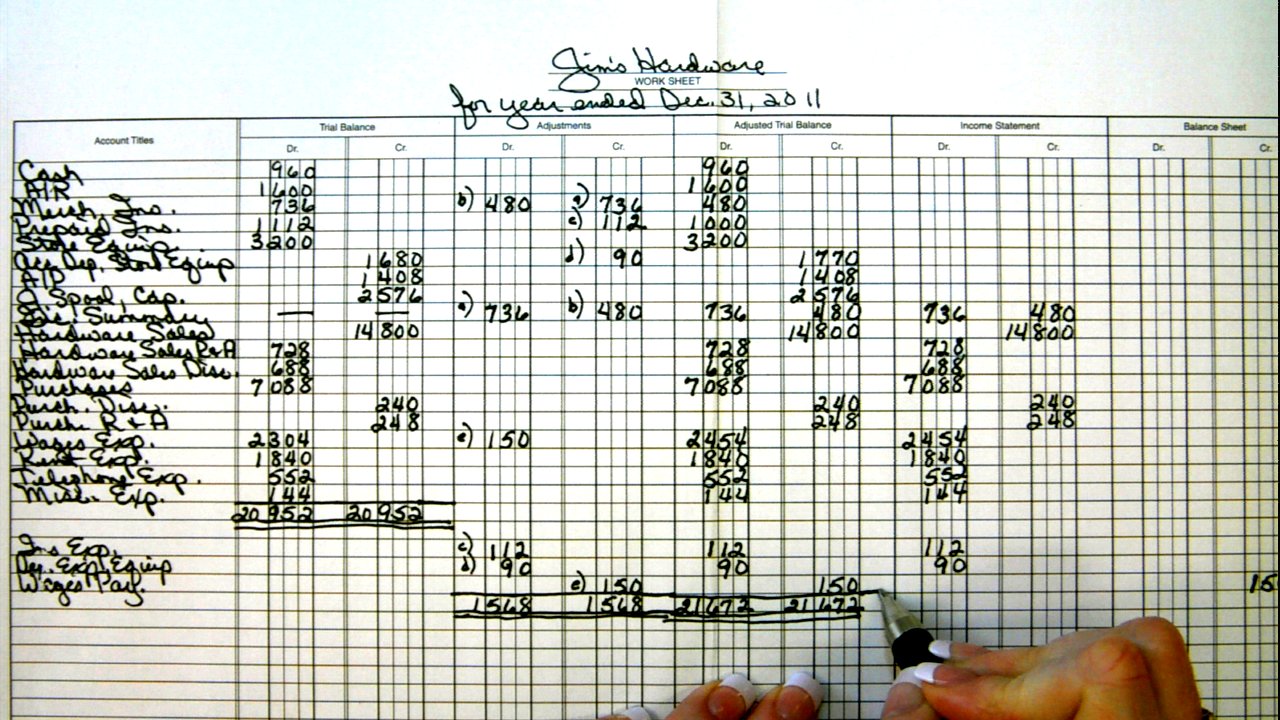 Jim's Hardware
WORK SHEET
for year ended Dec. 31, 2011
Account Titles Trial Balance Adjustments Adjusted Trial Balance Income Statement Balance Sheet
Dr. Cr. Dr. Cr. Dr. Cr. Dr. Cr. Dr. Cr.
Cash 960 960
A/R 1600 1600
Merch. Ins. 736 b) 480 a) 736 480
Prepaid Ins. 1112 c) 112 1000
Store Equip. 3200 3200
Acc. Dep. Store Equip 1680 d) 90 1770
A/P 1408 1408
J. Spool, Cap. 2576 2576
Inc. Summary — — a) 736 b) 480 736 480 736 480
Hardware Sales 14800 14800 14800
Hardware Sales R&A 728 728 728
Hardware Sales Disc. 688 688 688
Purchases 7088 7088 7088
Purch. Disc. 240 240 240
Purch. R & A 248 248 248
Wages Exp. 2304 e) 150 2454 2454
Rent Exp. 1840 1840 1840
Telephone Exp. 552 552 552
Misc. Exp. 144 144 144
20952 20952
Ins Exp. c) 112 112 112
Dep. Exp. Equip d) 90 90 90
Wages Pay. e) 150 150 15
1568 1568 21672 21672